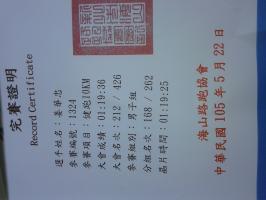 完賽證明
Record Certificate
選手姓名：姜華忠
參賽編號：1324
參賽項目：健跑10KM
大會成績：01:19:36
大會名次：212 / 426
參賽組別：男子組
分組名次：168 / 262
晶片時間：01:19:25
海山路跑協會
中華民國 105 年 5 月 22 日